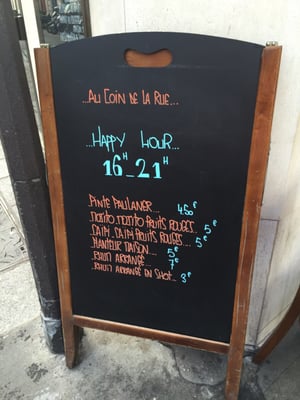 ...Au Coin de la Rue...
...Happy Hour...
16H_21H
Pinte Paulaner... 4.50€
Mojito Mojito Fruits Rouges.. 5€
Caïpi.. Caïpi Fruits Rouges... 5€
Planteur Maison.... 5€
Rhum Arrangé..... 7€
Rhum Arrangé en Shot... 3€